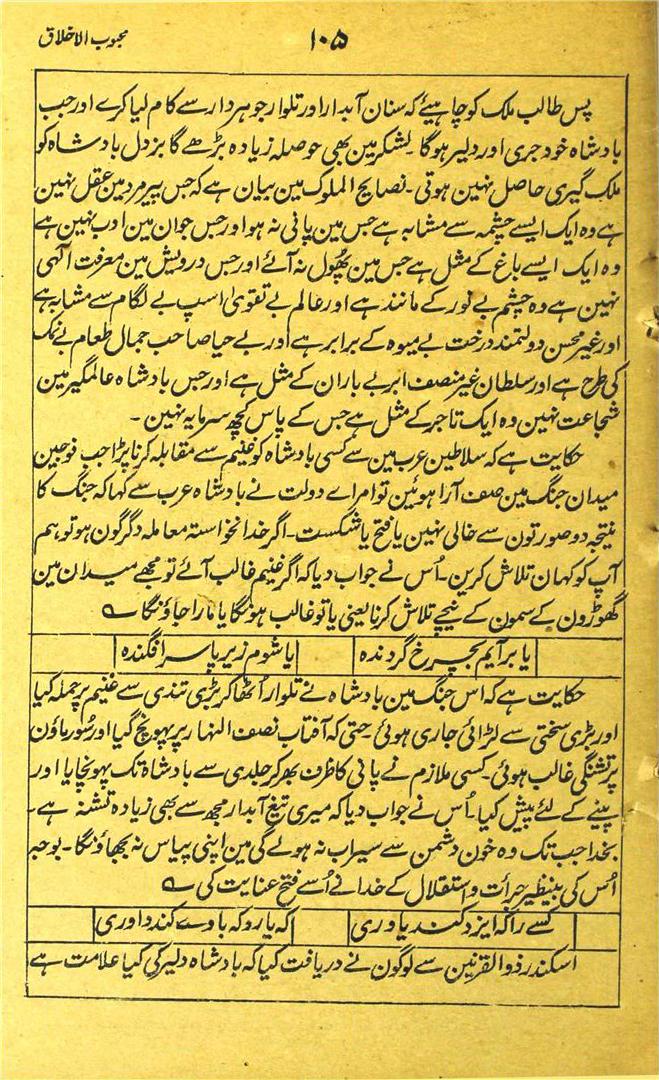 محبوب الاخلاق
۱۰۵
پس طالب ملک کو چاہیئے کہ سنان آبدار اور تلوار جوہردار سے کام لیا کرے اور جب
بادشاہ خود جری اور دلیر ہوگا۔ لشکر مین بھی حوصلہ زیادہ بڑھے گا بزدل بادشاہ کو
ملک گیری حاصل نہین ہوتی۔ نصایح الملوک مین بیان ہے کہ جس پیر مرد مین عقل نہین
ہے وہ ایک ایسے چشمہ سے مشابہ ہے جس مین پانی نہ ہو اور جس جوان مین ادب نہین ہے
وہ ایک ایسے باغ کے مثل ہے جس مین پھُول نہ آئے اور جس درویش مین معرفت الٰہی
نہین ہے وہ چشم بے نور کے مانند ہے اور عالم بے تقویٰ اسپ بے لگام سے مشابہ ہے
اور غیر محسن دولتمند درخت بے میوہ کے برابر ہے اور بے حیا صاحب جمال طعام بے نمک
کی طرح ہے اور سلطان غیر منصف ابر بے باران کے مثل ہے اور جس بادشاہ عالمگیر مین
شجاعت نہین وہ ایک تاجر کے مثل ہے جس کے پاس کچھ سرمایہ نہین۔
حکایت ہے کہ سلاطین عرب مین سے کسی بادشاہ کو غنیم سے مقابلہ کرنا پڑا جب فوجین
میدان جنگ مین صف آرا ہوئین تو امراے دولت نے بادشاہ عرب سے کہا کہ جنگ کا
نتیجہ دو صورتون سے خالی نہین یا فتح یا شکست۔ اگر خدانخواستہ معاملہ دگرگون ہو تو، ہم
آپ کو کہان تلاش کرین۔ اُس نے جواب دیا کہ اگر غنیم غالب آئے تو مجھے میدان مین
گھوڑون کے سمون کے نیچے تلاش کرنا یعنی یا تو غالب ہونگا یا مارا جاؤنگا ؎
یا برآیم بچرخ گردندہ
یا شوم زیر پا سر افگندہ
حکایت ہے کہ اس جنگ مین بادشاہ نے تلوار اُٹھا کر بڑی تندی سے غنیم پر حملہ کیا
اور بڑی سختی سے لڑائی جاری ہوئی۔ حتی کہ آفتاب نصف النہار پر پہونچ گیا اور سُورماؤن
پر تشنگی غالب ہوئی۔ کسی ملازم نے پانی کا ظرف بھر کر جلدی سے بادشاہ تک پہونچایا اور
پینے کے لئے پیش کیا۔ اُس نے جواب دیا کہ میری تیغ آبدار مجھ سے بھی زیادہ تشنہ ہے۔
بخدا جب تک وہ خون دشمن سے سیراب نہ ہولے گی مین اپنی پیاس نہ بجھاؤنگا۔ بوجہ
اُس کی بینظیر جرأت و استقلال کے خدا نے اُسے فتح عنایت کی ؎
کسے را کہ ایزد کند یاوری
کہ یارد کہ با وے کند داوری
اسکندر ذوالقرنین سے لوگون نے دریافت کیا کہ بادشاہ دلیر کی کیا علامت ہے